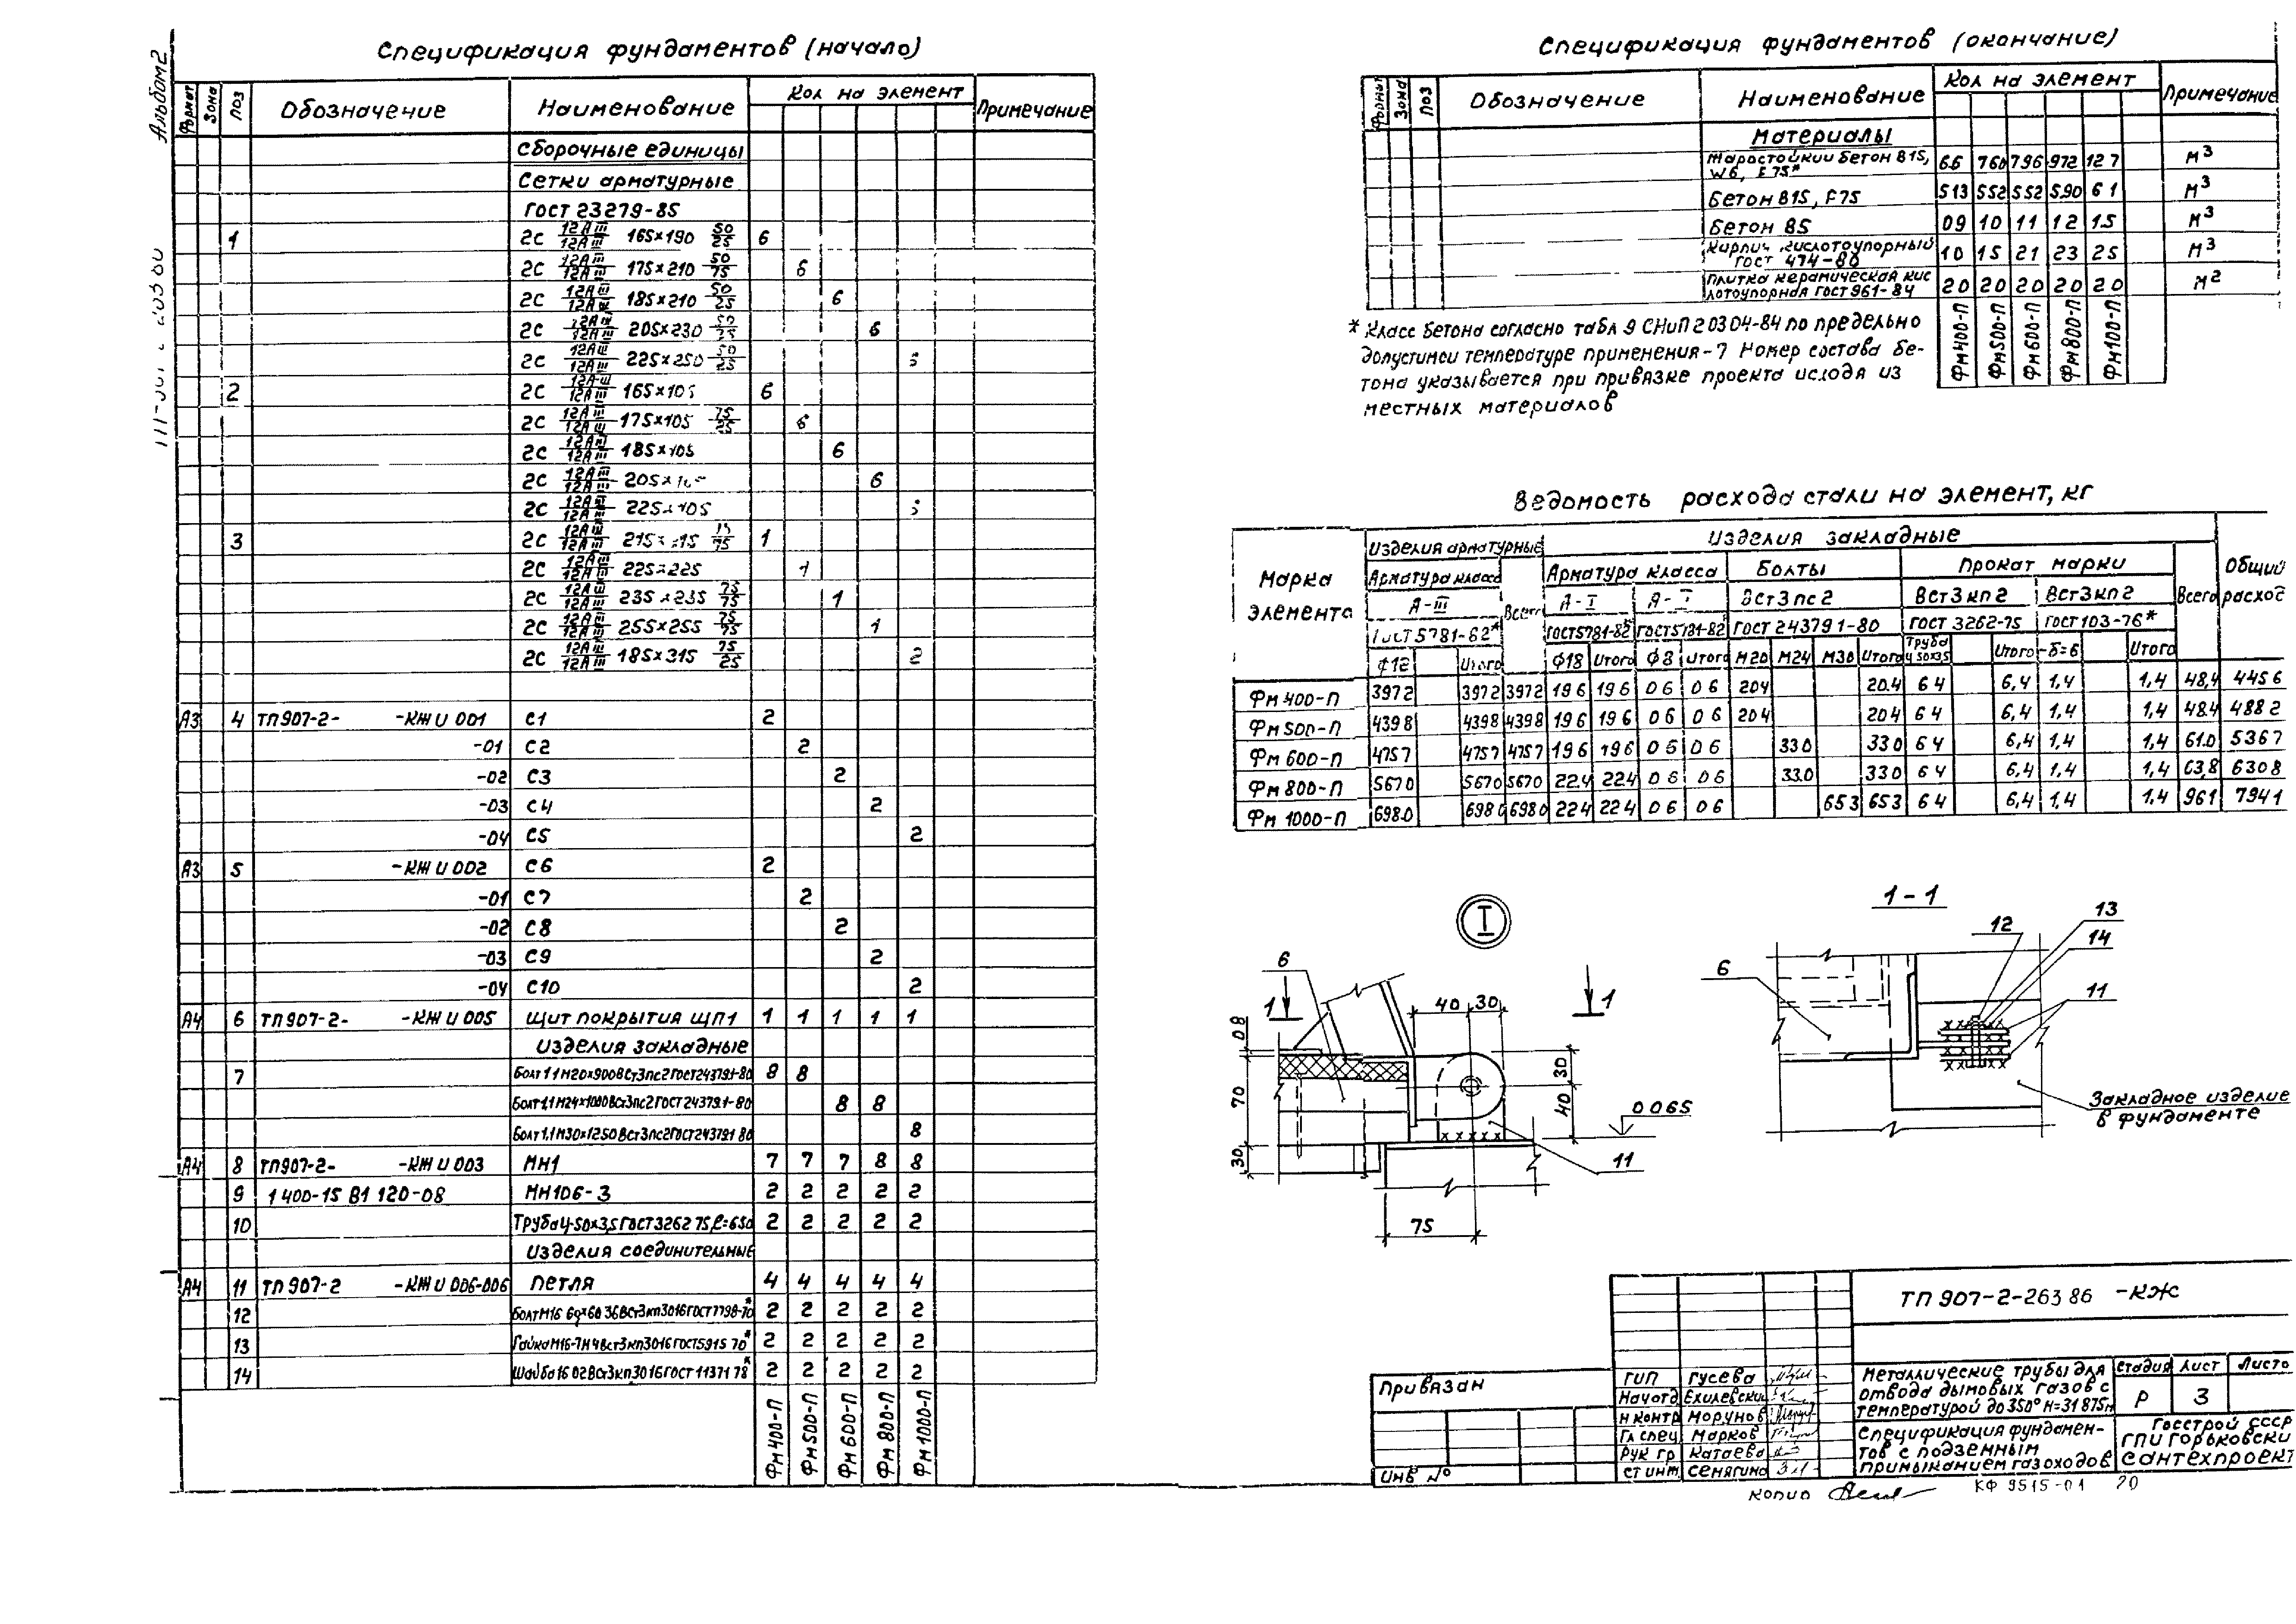 Альбом 2
Спецификация фундаментов (начало)
Формат Зона Поз Обозначение Наименование Кол на элемент Примечание
Сборочные единицы
Сетки арматурные
ГОСТ 23279-85
1 2С 12АIII/12АIII 165×190 50/25 6
2С 12АIII/12АIII 175×210 50/75 6
2С 12АIII/12АIII 185×210 50/25 6
2С 12АIII/12АIII 205×230 50/25 6
2С 12АIII/12АIII 225×250 50/25
2 2С 12АIII/12АIII 165×105 6
2С 12АIII/12АIII 175×105 75/25 6
2С 12АIII/12АIII 185×105 6
2С 12АIII/12АIII 205× 6
2С 12АIII/12АIII 225×105
3 2С 12АIII/12АIII 215× 75 1
2С 12АIII/12АIII 225×225 1
2С 12АIII/12АIII 235×235 75/75 1
2С 12АIII/12АIII 255×255 75/75 1
2С 12АIII/12АIII 185×315 75/25 2
А3 4 ТП907-2- -КЖИ 001 С1 2
-01 С2 2
-02 С3 2
-03 С4 2
-04 С5 2
А3 5 -КЖИ 002 С6 2
-01 С7 2
-02 С8 2
-03 С9 2
-04 С10 2
А4 6 ТП907-2- -КЖИ 005 Щит покрытия ЩП1 1 1 1 1 1
Изделия закладные
7 Болт 1.1 М20×900 ВСт3пс2 ГОСТ 24379.1-80 8 8
Болт 1.1 М24×1000 ВСт3пс2 ГОСТ 24379.1-80 8 8
Болт 1.1 М30×1250 ВСт3пс2 ГОСТ 24379.1 80 8
А4 8 ТП907-2- -КЖИ 003 МН1 7 7 7 8 8
9 1 400-15 В1 120-08 МН106-3 2 2 2 2 2
10 Труба Ц-50×3,5 ГОСТ 3262 75, ℓ=650 2 2 2 2 2
Изделия соединительные
А4 11 ТП 907-2 -КЖИ 006-006 Петля 4 4 4 4 4
12 Болт М16 6g×60 36 ВСт3кп3016 ГОСТ 7798-70* 2 2 2 2 2
13 Гайка М16-7Н 4 ВСт3кп3016 ГОСТ 5915 70* 2 2 2 2 2
14 Шайба 16 02 ВСт3кп3016 ГОСТ 11371 78* 2 2 2 2 2
Фм 400-П Фм 500-П Фм 600-П Фм 800-П Фм 1000-П
Спецификация фундаментов (окончание)
Формат Зона Поз Обозначение Наименование Кол на элемент Примечание
Материалы
Жаростойкий бетон В15, W6, F75* 6.6 7.60 7.96 9.72 12 7 м3
Бетон В15, F75 5 13 5 52 5 52 5.90 6 1 м3
Бетон В5 0 9 1 0 1 1 1 2 1.5 м3
Кирпич кислотоупорный
ГОСТ 474-80 1 0 1 5 2 1 2 3 2 5 м3
Плитка керамическая кис
лотоупорная ГОСТ 961-84 2 0 2 0 2 0 2 0 2 0 м2
Фм 400-П Фм 500-П Фм 600-П Фм 800-П Фм 1000-П
* Класс бетона согласно табл 9 СНиП 2 03 04-84 по предельно
допустимой температуре применения-7 Номер состава бе-
тона указывается при привязке проекта исходя из
местных материалов
Ведомость расхода стали на элемент, кг
Марка элемента Изделия арматурные Изделия закладные Общий расход
Арматура класса Всего Арматура класса Болты Прокат марки Всего
А-III А-I А-I ВСт3пс2 ВСт3кп2 ВСт3кп2
ГОСТ 5781-82* ГОСТ 5781-82* ГОСТ 5781-82* ГОСТ 24379 1-80 ГОСТ 3262-75 ГОСТ 103-76*
Ф12 Итого Ф18 Итого Ф8 Итого М20 М24 М30 Итого Труба Ц 50×3,5 Итого -δ=6 Итого
Фм 400-П 397 2 397 2 397 2 19 6 19 6 0 6 0 6 20 4 20.4 6 4 6,4 1,4 1,4 48,4 445 6
Фм 500-П 439 8 439 8 439 8 19 6 19 6 0 6 0 6 20 4 20 4 6 4 6,4 1,4 1,4 48.4 488 2
Фм 600-П 475 7 475 7 475 7 19 6 19 6 0 6 0 6 33 0 33 0 6 4 6,4 1,4 1,4 61.0 536 7
Фм 800-П 567 0 567 0 567 0 22.4 22 4 0 6 0 6 33.0 33 0 6 4 6,4 1,4 1,4 63,8 630 8
Фм 1000-П 698.0 698 0 698 0 22 4 22 4 0 6 0 6 65 3 65 3 6 4 6,4 1,4 1.4 96 1 794 1
I
6
1 1
40 30
80
70
30
30
40
0 065
11
75
1-1
12
13
14
6
11
Закладное изделие
в фундаменте
ТП 907-2-263 86 -КЖ
Привязан
Инв №
ГИП Гусева
Нач отд Ехилевский
Н контр Морунов
Гл спец Марков
Рук гр Катаева
Ст инж Сенягина
Металлические трубы для
отвода дымовых газов с
температурой до 350° Н=31 875м
Стадия Лист Листо
Р 3
Спецификация фундамен-
тов с подземным
примыканием газоходов
Госстрой СССР
ГПИ Горьковски
Сантехпроект
Копир
КФ 9515-01 20